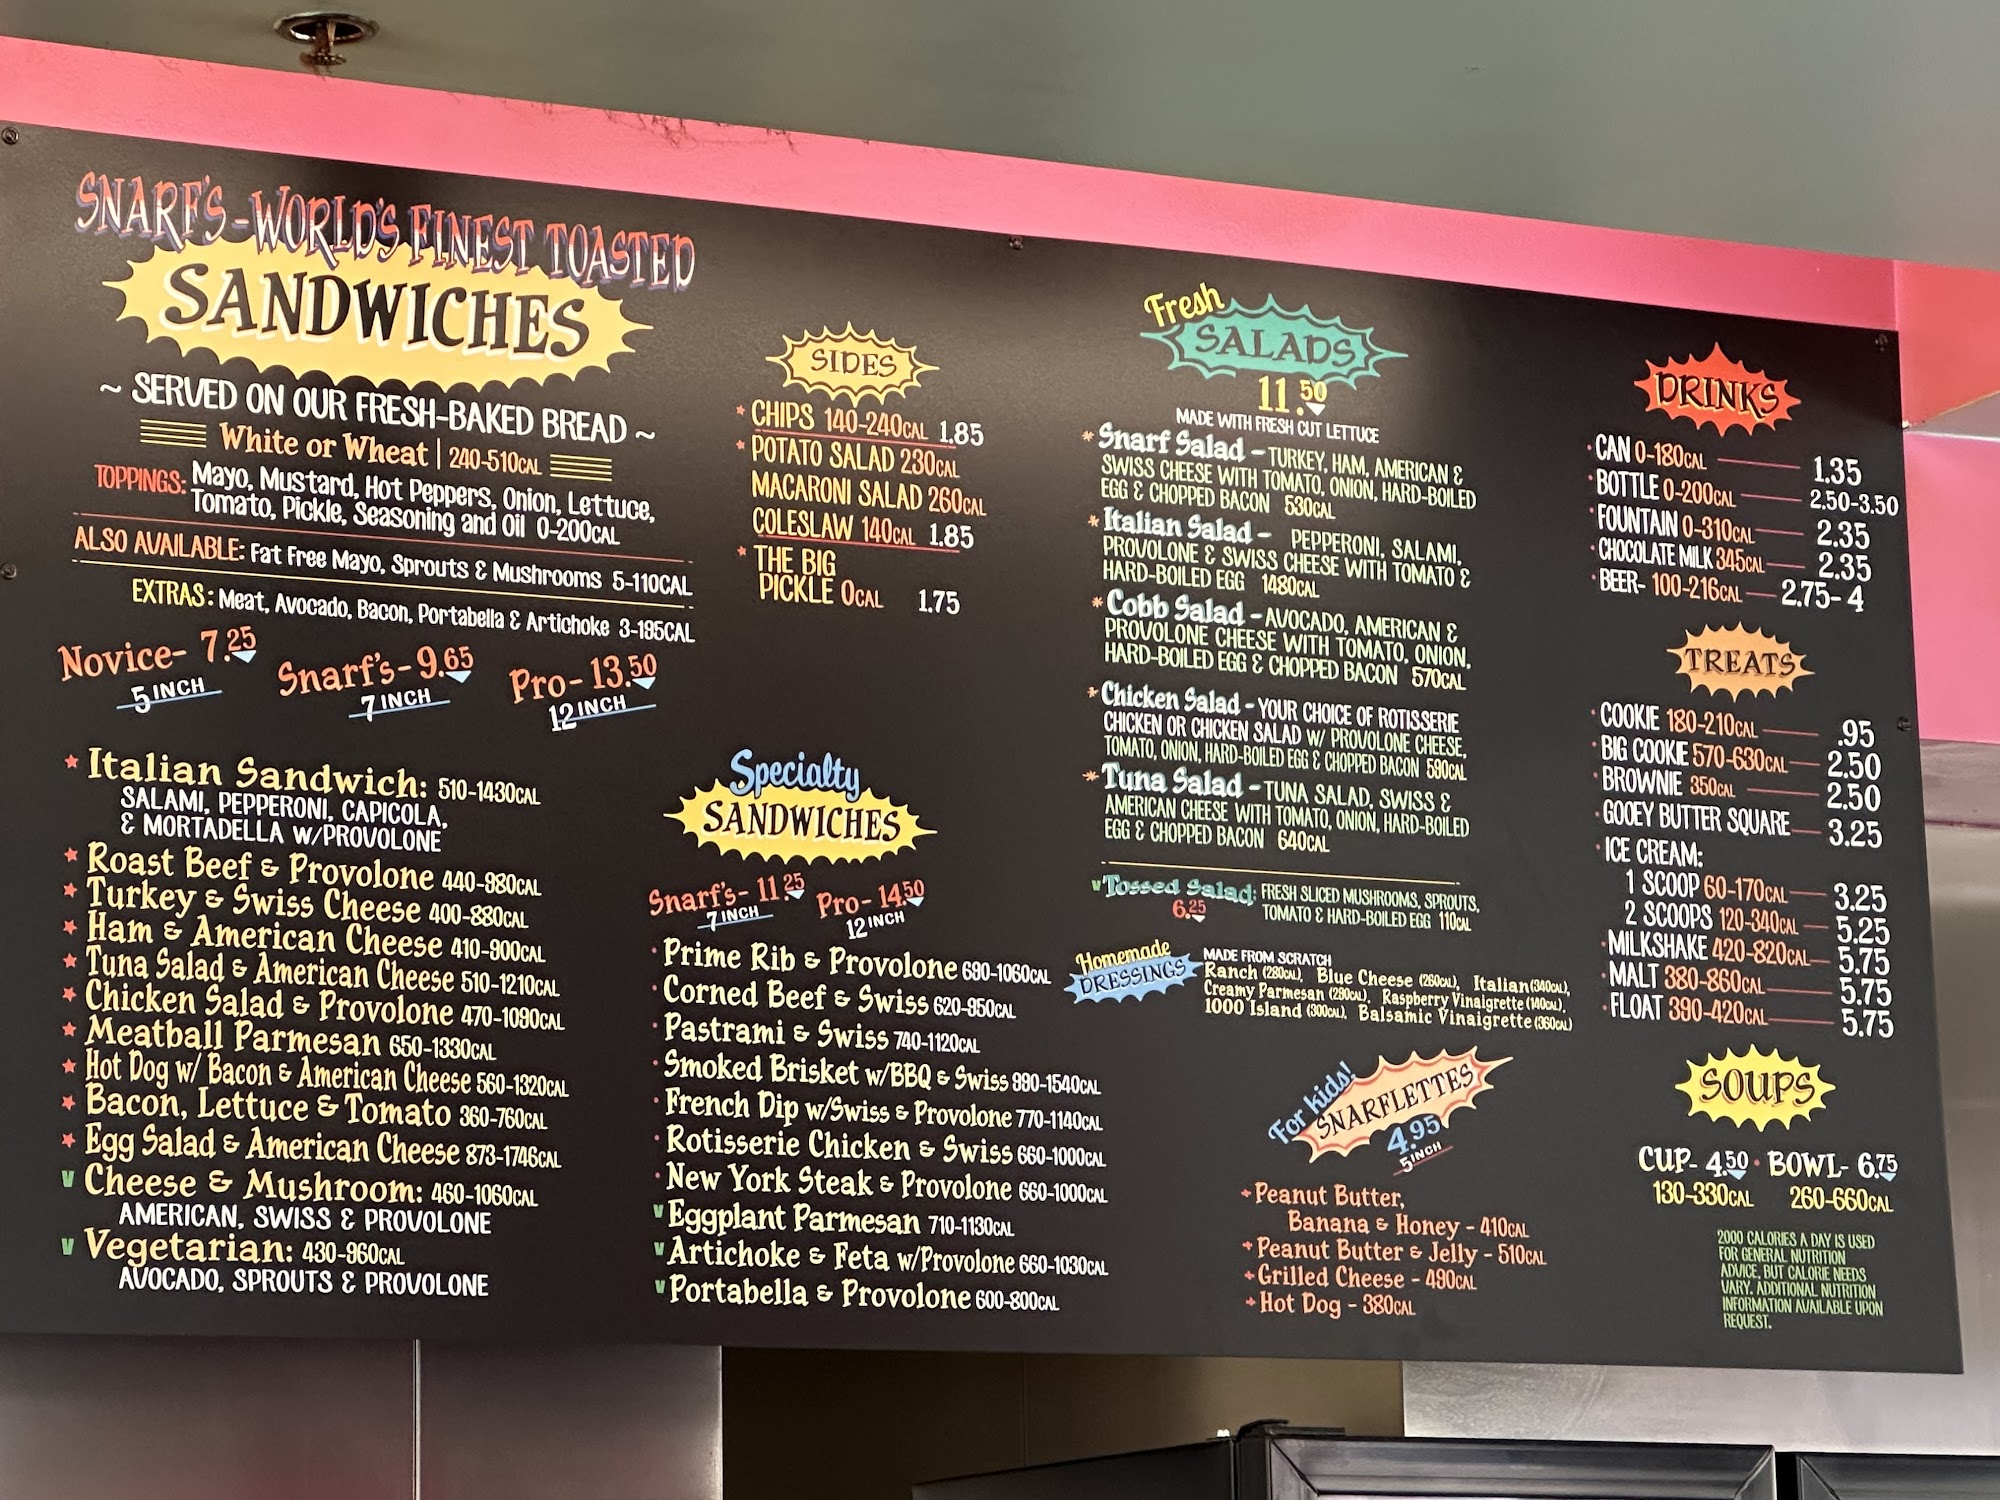 SNARF'S - WORLD'S FINEST TOASTED
SANDWICHES
~ SERVED ON OUR FRESH-BAKED BREAD ~
White or Wheat | 240-510CAL
TOPPINGS: Mayo, Mustard, Hot Peppers, Onion, Lettuce,
Tomato, Pickle, Seasoning and Oil 0-200CAL
ALSO AVAILABLE: Fat Free Mayo, Sprouts & Mushrooms 5-110CAL
EXTRAS: Meat, Avocado, Bacon, Portabella & Artichoke 3-195CAL
Novice- 7.25
5 INCH
Snarf's- 9.65
7 INCH
Pro- 13.50
12 INCH
* Italian Sandwich: 510-1430CAL
SALAMI, PEPPERONI, CAPICOLA,
& MORTADELLA W/PROVOLONE
* Roast Beef & Provolone 440-980CAL
* Turkey & Swiss Cheese 400-880CAL
* Ham & American Cheese 410-900CAL
* Tuna Salad & American Cheese 510-1210CAL
* Chicken Salad & Provolone 470-1090CAL
* Meatball Parmesan 650-1330CAL
* Hot Dog w/ Bacon & American Cheese 560-1320CAL
* Bacon, Lettuce & Tomato 360-760CAL
* Egg Salad & American Cheese 873-1746CAL
V Cheese & Mushroom: 460-1060CAL
AMERICAN, SWISS & PROVOLONE
V Vegetarian: 430-960CAL
AVOCADO, SPROUTS & PROVOLONE
SIDES
* CHIPS 140-240CAL 1.85
* POTATO SALAD 230CAL
MACARONI SALAD 260CAL
COLESLAW 140CAL 1.85
* THE BIG
PICKLE 0CAL 1.75
Specialty
SANDWICHES
Snarf's- 11.25
7 INCH
Pro- 14.50
12 INCH
· Prime Rib & Provolone 690-1060CAL
· Corned Beef & Swiss 620-950CAL
· Pastrami & Swiss 740-1120CAL
· Smoked Brisket w/BBQ & Swiss 990-1540CAL
· French Dip w/Swiss & Provolone 770-1140CAL
· Rotisserie Chicken & Swiss 660-1000CAL
· New York Steak & Provolone 660-1000CAL
V Eggplant Parmesan 710-1130CAL
V Artichoke & Feta w/Provolone 660-1030CAL
V Portabella & Provolone 600-800CAL
Fresh
SALADS
11.50
MADE WITH FRESH CUT LETTUCE
* Snarf Salad - TURKEY, HAM, AMERICAN &
SWISS CHEESE WITH TOMATO, ONION, HARD-BOILED
EGG & CHOPPED BACON 530CAL
* Italian Salad - PEPPERONI, SALAMI,
PROVOLONE & SWISS CHEESE WITH TOMATO &
HARD-BOILED EGG 1480CAL
* Cobb Salad - AVOCADO, AMERICAN &
PROVOLONE CHEESE WITH TOMATO, ONION,
HARD-BOILED EGG & CHOPPED BACON 570CAL
* Chicken Salad - YOUR CHOICE OF ROTISSERIE
CHICKEN OR CHICKEN SALAD W/ PROVOLONE CHEESE,
TOMATO, ONION, HARD-BOILED EGG & CHOPPED BACON 590CAL
* Tuna Salad - TUNA SALAD, SWISS &
AMERICAN CHEESE WITH TOMATO, ONION, HARD-BOILED
EGG & CHOPPED BACON 640CAL
V Tossed Salad: FRESH SLICED MUSHROOMS, SPROUTS,
6.25 TOMATO & HARD-BOILED EGG 110CAL
Homemade
DRESSINGS
MADE FROM SCRATCH
Ranch (280CAL), Blue Cheese (260CAL), Italian (340CAL),
Creamy Parmesan (290CAL), Raspberry Vinaigrette (140CAL),
1000 Island (300CAL), Balsamic Vinaigrette (360CAL)
For kids!
SNARFLETTES
4.95
5 INCH
Peanut Butter,
Banana & Honey - 410CAL
Peanut Butter & Jelly - 510CAL
Grilled Cheese - 490CAL
Hot Dog - 380CAL
DRINKS
· CAN 0-180CAL 1.35
· BOTTLE 0-200CAL 2.50-3.50
· FOUNTAIN 0-310CAL 2.35
· CHOCOLATE MILK 345CAL 2.35
· BEER- 100-216CAL 2.75- 4
TREATS
· COOKIE 180-210CAL .95
· BIG COOKIE 570-630CAL 2.50
· BROWNIE 350CAL 2.50
· GOOEY BUTTER SQUARE 3.25
· ICE CREAM:
1 SCOOP 60-170CAL 3.25
2 SCOOPS 120-340CAL 5.25
· MILKSHAKE 420-820CAL 5.75
· MALT 380-860CAL 5.75
· FLOAT 390-420CAL 5.75
SOUPS
CUP- 4.50 · BOWL- 6.75
130-330CAL 260-660CAL
2000 CALORIES A DAY IS USED
FOR GENERAL NUTRITION
ADVICE, BUT CALORIE NEEDS
VARY. ADDITIONAL NUTRITION
INFORMATION AVAILABLE UPON
REQUEST.